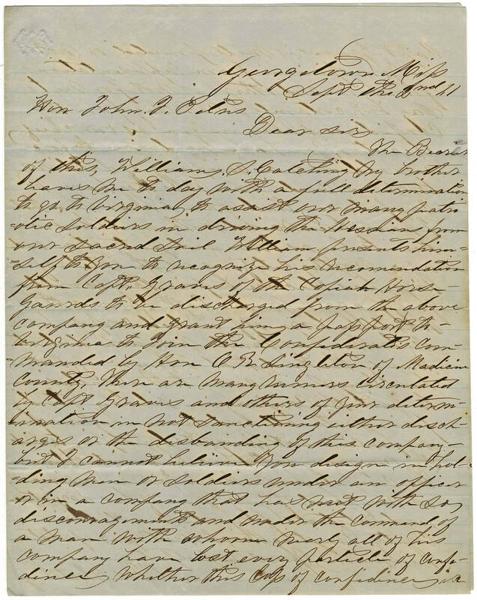 Georgetown Miss
Sept the 2nd 61
Hon John J. Pettus
Dear Sir
The Bearer
of this, William S Catching my brother
leaves me to day with a full determination
to go to Virginia to assist our many patri-
otic soldiers in driving the Hessians from
our sacred Soil William presents him-
self to you to recognize his recomendation
from Capt Graves of the Copiah Horse
Guards to be discharged from the above
company and grant him a passport to
virginia to Join the Considerate com-
manded by Hon O R Singleton of Madison
County there are many rumors circulated
by Capt Graves and others of your determ-
ination in not sanctioning either disch-
arges or the disbanding of this company
but I cannot believe you design in hol-
ding men or soldiers under an officer
or in a company that has met with so
discouragements and under the command of
a man with whoom nearly all of his
company have lost every particle of confi-
dence, Whether this loss of confidence is